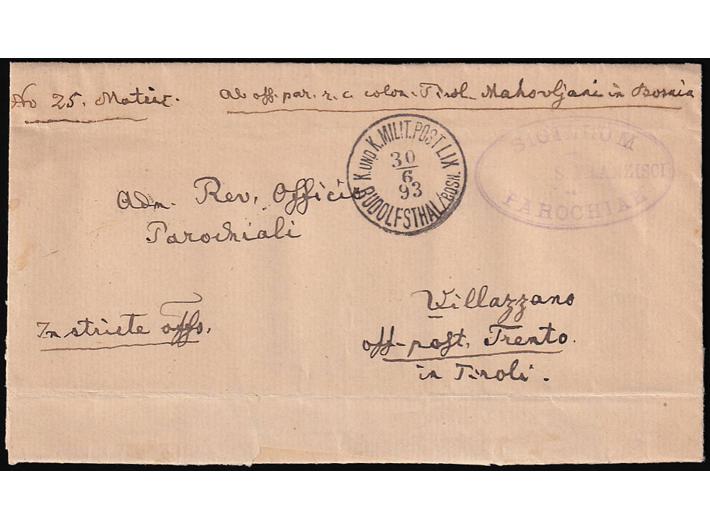 No 25. Matric. Ab off. par. r. c. colon. Tirol. Mahovljani in Bosnia
SIGILLUM
PAROCHIAE
K. UND K. MILIT. POST LIX
30
6
93
RUDOLFSTHAL/BOSN.
Adm. Rev. Officio
Parochiali
Villazzano
In stricte offo.
off-post. Trento.
in Tiroli.